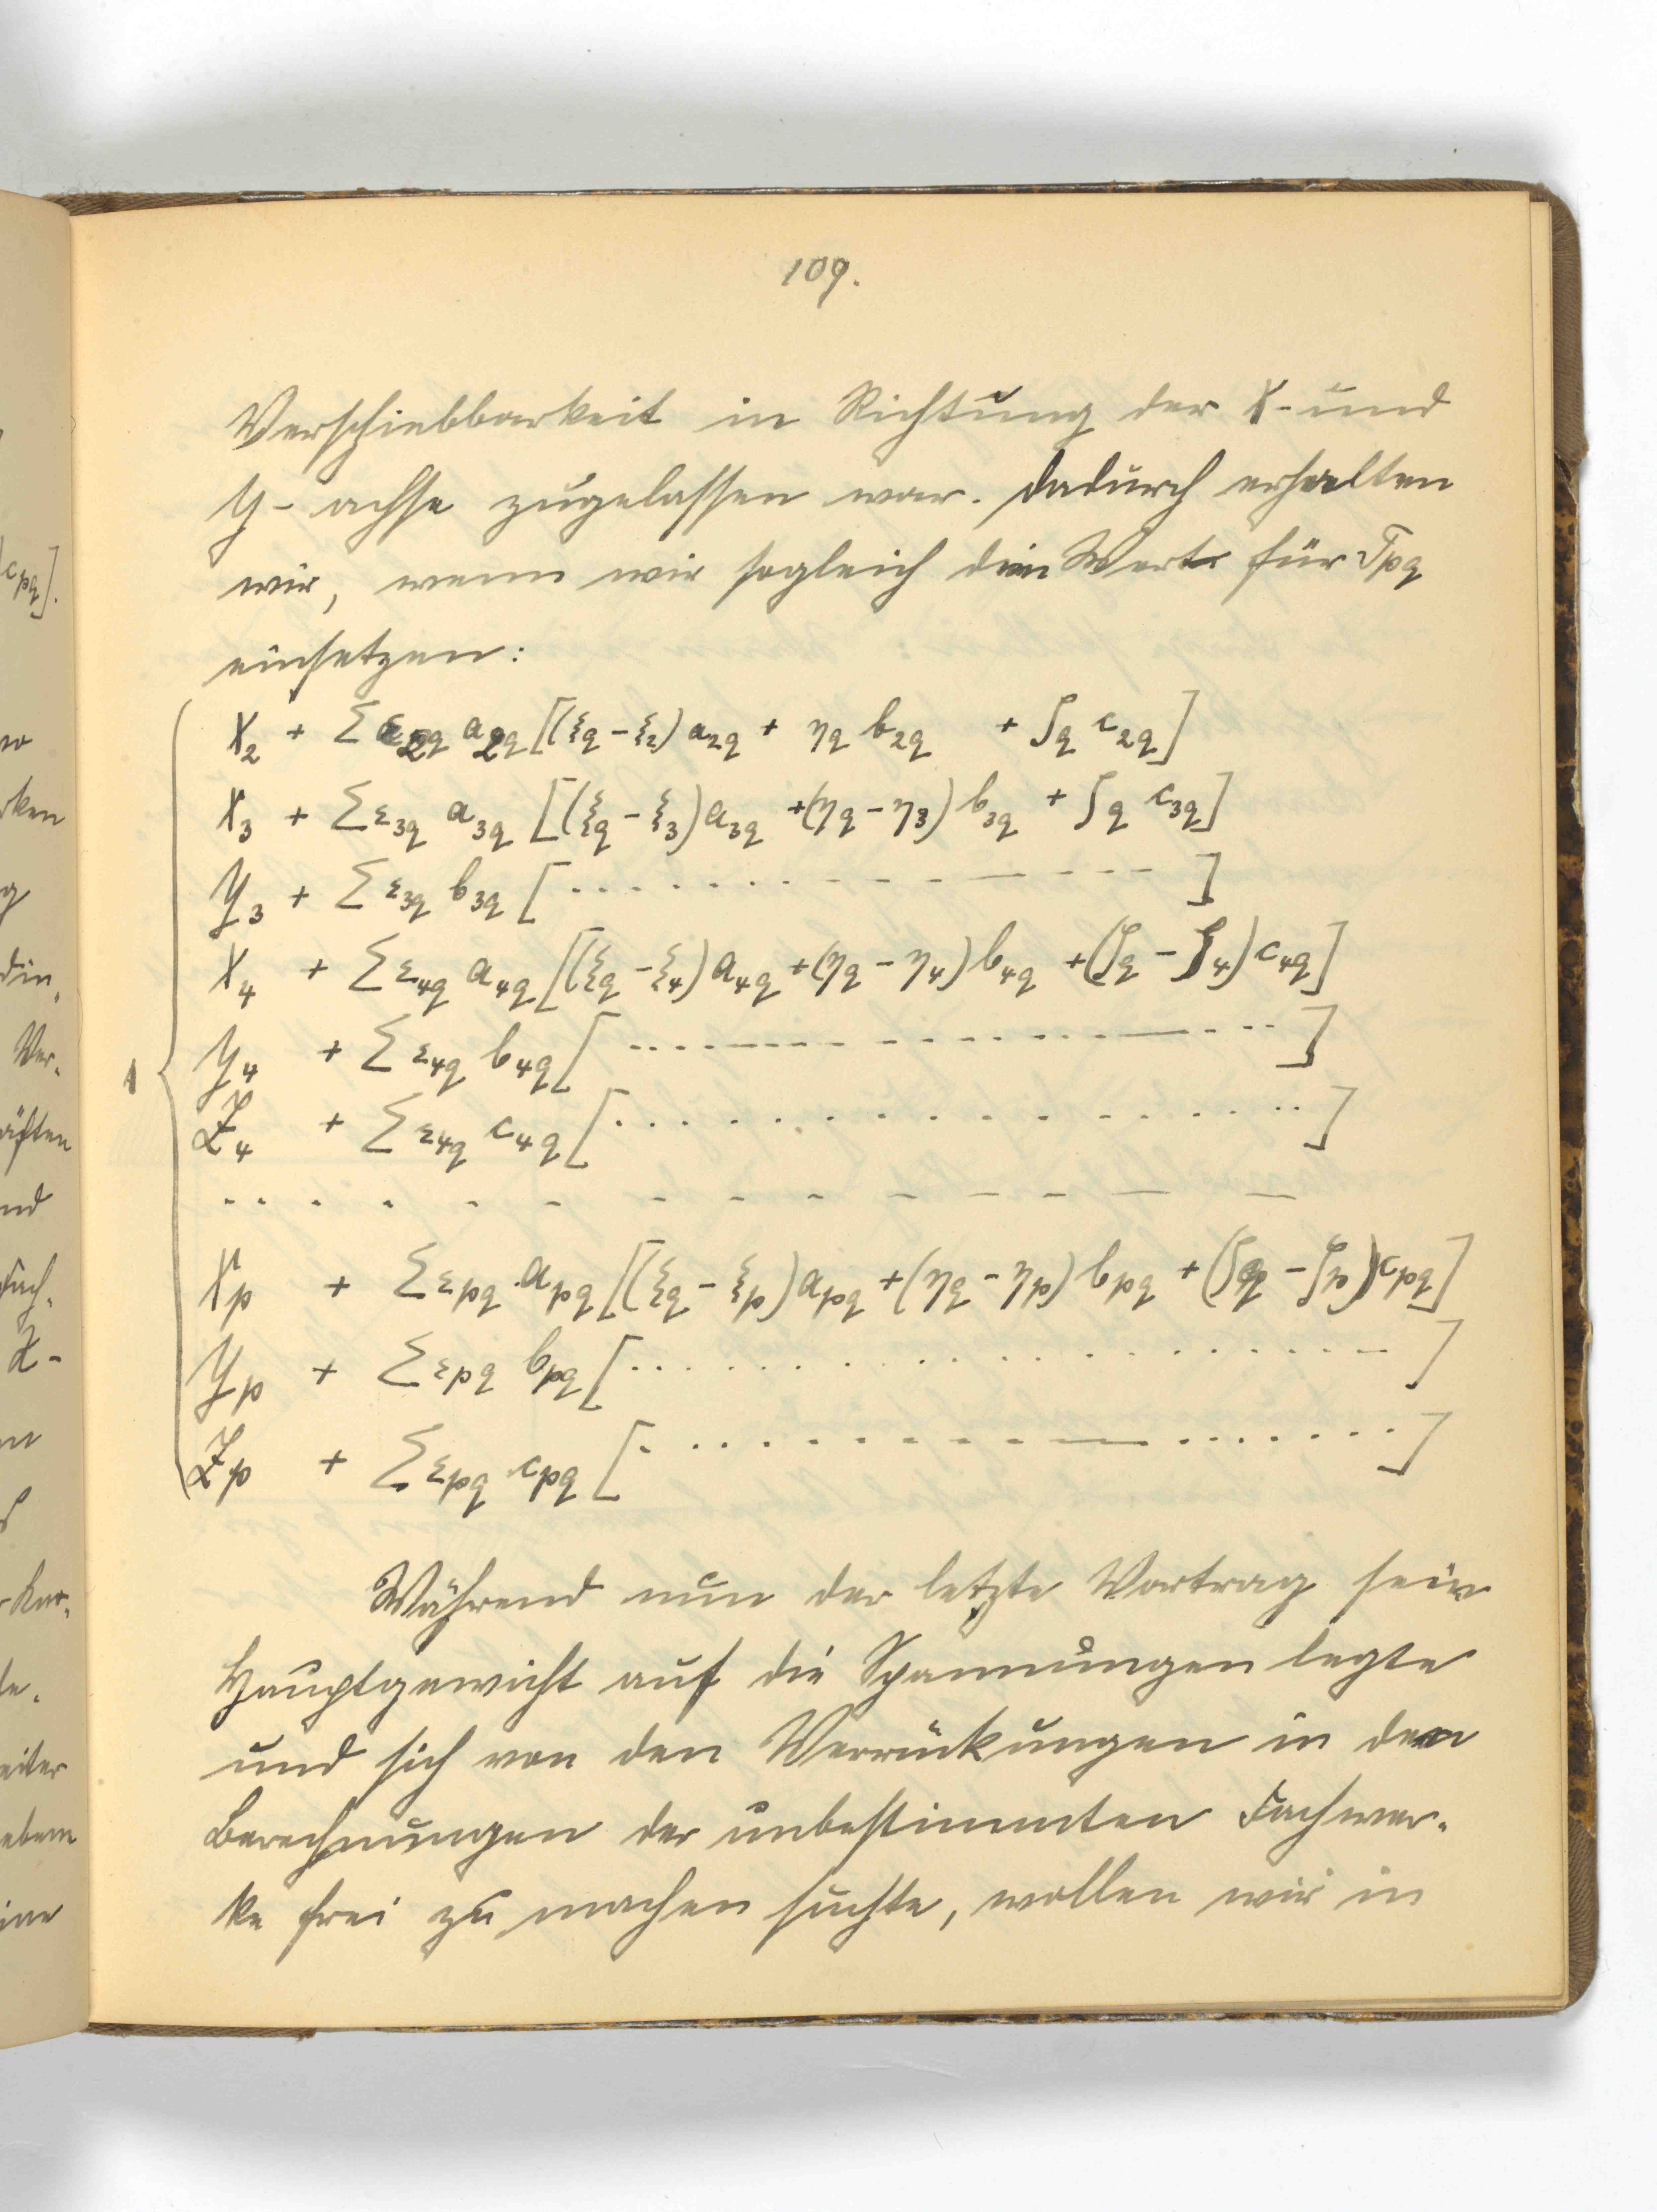 109.
Verschiebbarkeit in Richtung der X- und
Y- achse zugelassen war. Dadurch erhalten
wir, wenn wir sogleich den Wert für Tpq
einsetzen:
X₂ + Σ ε₂q a₂q [(ξq - ξ₂) a₂q + ηq b₂q + ζq c₂q]
X₃ + Σ ε₃q a₃q [(ξq - ξ₃) a₃q + (ηq - η₃) b₃q + ζq c₃q]
Y₃ + Σ ε₃q b₃q [ . . . . . . . . - - - - - - - ]
X₄ + Σ ε₄q a₄q [(ξq - ξ₄) a₄q + (ηq - η₄) b₄q + (ζq - ζ₄) c₄q]
1
Y₄ + Σ ε₄q b₄q [ . . . - - - - - - - - - - . . . ]
Z₄ + Σ ε₄q c₄q [ . . . . . . . . . . . . . . . ]
- - - - - - - - - - - - - -
Xp + Σ εpq apq [(ξq - ξp) apq + (ηq - ηp) bpq + (ζq - ζp) cpq]
Yp + Σ εpq bpq [ . . . . . . . . . . . . . . . ]
Zp + Σ εpq cpq [ . . . . . . . . . . . . . . . ]
Während nun der letzte Vortrag sein
Hauptgewicht auf die Spannungen legte
und sich von den Verrückungen in den
Berechnungen der unbestimmten Fachwer-
ke frei zu machen suchte, wollen wir in